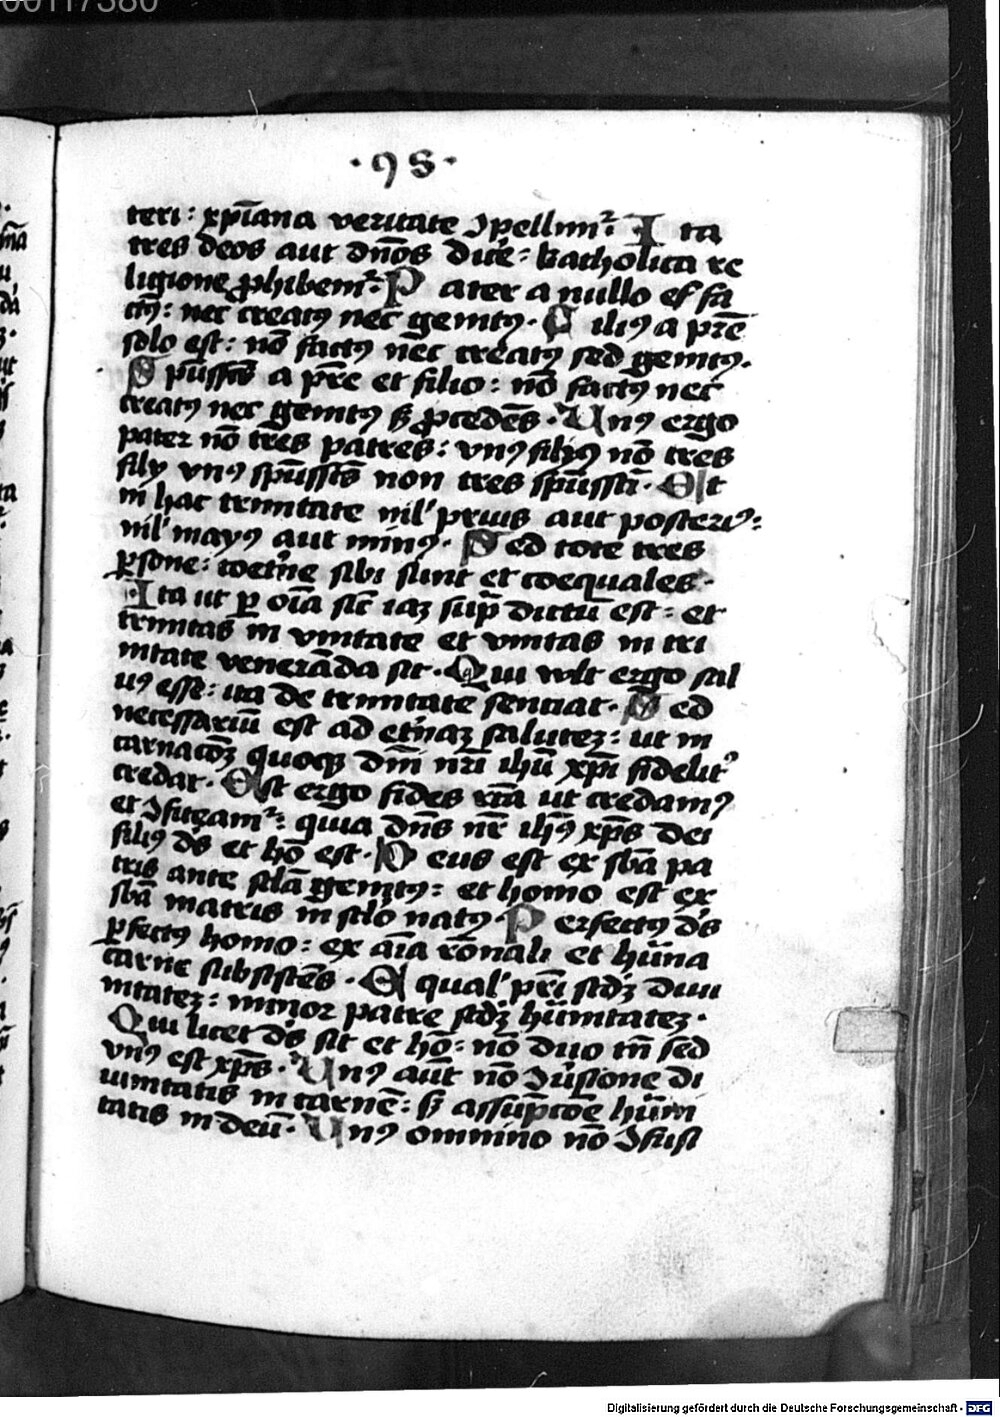 ·98·
teri: xp̄iana veritate ꝯpellim᷒: Ita
tres deos aut dn̄os dic̄e: katholica re
ligione ꝓhibem᷒: Pater a nullo est fa
ctꝰ: nec creatꝰ nec genitꝰ. Filiꝰ a pr̄e
solo est: nō factꝰ nec creatꝰ sed genitꝰ.
Sp̄ussctūs a pr̄e et filio: nō factꝰ nec
creatꝰ nec genitꝰ sꝫ ꝓcedēs. Unꝰ ergo
pater nō tres patres: vnꝰ filiꝰ nō tres
filij vnꝰ sp̄ussctūs non tres sp̄ussctī. Et
in hac trinitate nil' prius aut posteriꝰ:
nil' mayꝰ aut minꝰ. Sed tote tres
ꝑsone: coet̄ne sibi sunt et coequales.
Ita ut ꝑ oīa sic̄ iaꝫ sup̄ dictū est: et
trinitas in vnitate et vnitas in tri
nitate venerāda sit. Qui vult ergo sal
uꝰ esse: ita de trinitate sentiat. Sed
necessariū est ad et̄naꝫ saluteꝫ: ut in
carnacōꝫ quoqꝫ dn̄i nr̄i ihū xp̄i fidelit᷒
credat. Est ergo fides rc̄ta ut credamꝰ
et ꝯfiteam᷒: quia dn̄s nr̄ ihꝰ xp̄s dei
filiꝰ d̄s et hō est. Deus est ex sb̄a pa
tris ante sclā genitꝰ: et homo est ex
sb̄a matris in sclō natꝰ. Perfectꝰ d̄s
ꝑfectꝰ homo: ex aīa rōnali et hūna
carne subsistēs. Equal' pr̄i scdꝫ diui
nitateꝫ: minor patre scdꝫ hūnitateꝫ.
Qui licet d̄s sit et hō: nō duo tn̄ sed
vnꝰ est xp̄s. Unꝰ aūt nō ꝯūsione di
uinitatis in carnē: sꝫ assūpcōe hūni
tatis in deū. Unꝰ omnino nō ꝯfusi
Digitalisierung gefördert durch die Deutsche Forschungsgemeinschaft - DFG